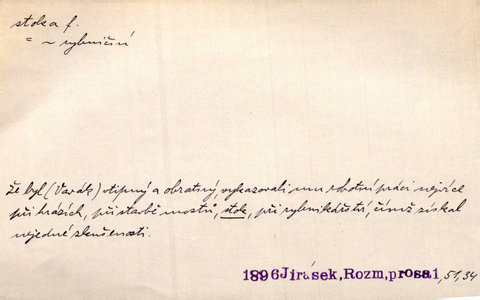 stoka f.
= ~ rybniční
že byl (Vavák) vtipný a obratný, vykazovali mu robotní práci nejvíce
při hrázích, při stavbě mostů, stok, při rybnikářství, čímž získal
nejedné zkušenosti.
1896 Jirásek, Rozm, prosa 1, 51, 34